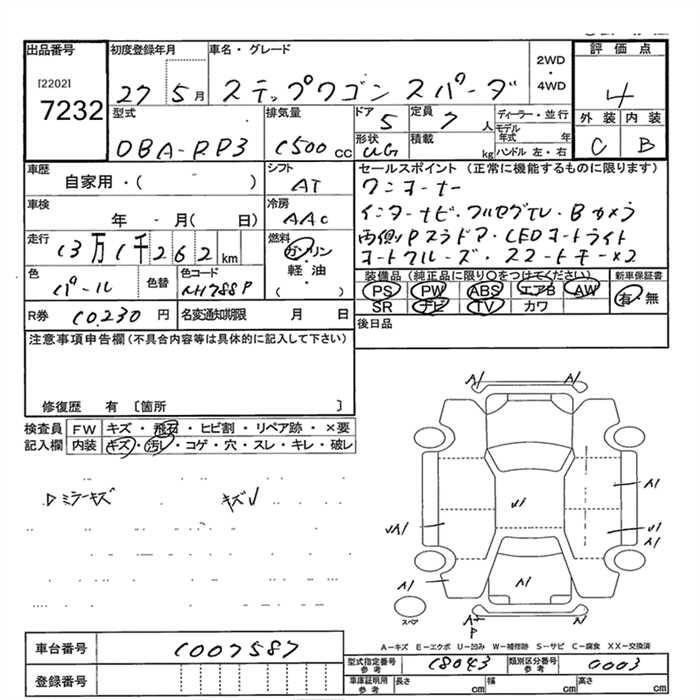 出品番号 初度登録年月 車名・グレード 評価点
[2202]
7232
27 5月 ステップワゴン スパーダ
2WD
・
4WD
4
外装 内装
C B
型式 排気量 ドア 定員 ディーラー・並行
DBA-RP3 1500 cc 5 7人
形状 積載 モデル年式 年
UG kg ハンドル 左・右
車歴 シフト セールスポイント (正常に機能するものに限ります)
自家用・( ) AT
ワンオーナー
車検 冷房
年 - 月( 日) AAC
インターナビ・フルセグTV・Bカメラ
走行 燃料
13万1千262km ガソリン・軽油・( )
両側Pスラドア・LEDオートライト
オートクルーズ・スマートキー×2
色 色替 色コード
パール NH788P
装備品 (純正品に限り○をつけてください) 新車保証書
PS PW ABS エアB AW 有・無
SR ナビ TV カワ
R券 10.230円 名変通知期限 月 日
後日品
注意事項申告欄(不具合内容等は具体的に記入して下さい)
修復歴 有 〔箇所 〕
検査員 FW キズ・飛石・ヒビ割・リペア跡・×要
記入欄 内装 キズ・汚レ・コゲ・穴・スレ・キレ・破レ
Dミラーキズ キズU
A1 A1
A1
U1
UA1 U1
A1
A1 A1
A2 A1
P
スペア
A-キズ E-エクボ U-凹み W-補修跡 S-サビ C-腐食 XX-交換済
車台番号 1007587
型式指定番号 参考 18043 類別区分番号 参考 0003
登録番号
車庫証明用 参考 長さ cm 幅 cm 高さ cm